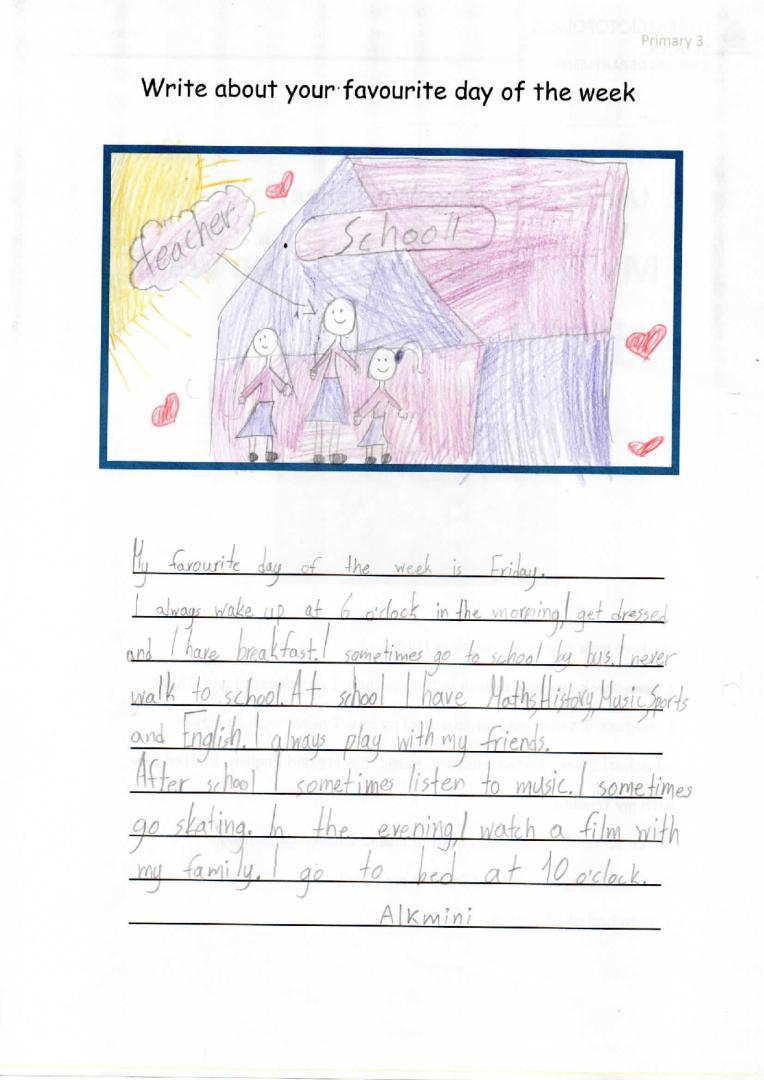 Primary 3
Write about your favourite day of the week
teacher
School!!
My favourite day of the week is Friday.
I always wake up at 6 o'clock in the morning, I get dressed
and I have breakfast. I sometimes go to school by bus. I never
walk to school. At school I have Maths, History, Music, Sports
and English. I always play with my friends.
After school I sometimes listen to music. I sometimes
go skating. In the evening, I watch a film with
my family. I go to bed at 10 o'clock.
Alkmini